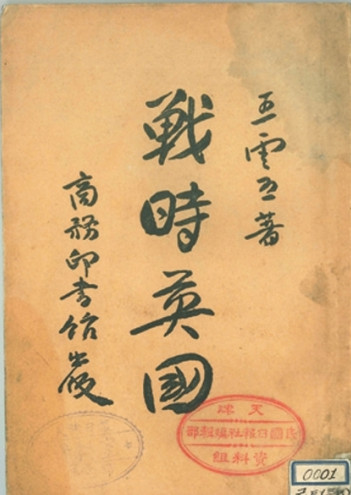 王雲五著
戰時英國
商務印書館出版
天津
民國日報社編輯部
資料組
0001